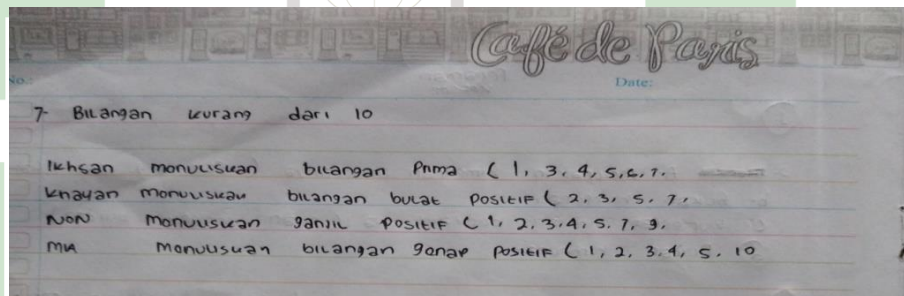 Café de Paris
No.:
Date:
7. Bilangan kurang dari 10
Ikhsan monuliskan bilangan Prima ( 1, 3, 4, 5, 6, 7.
Khayan monuliskan bilangan bulat POSITIF ( 2, 3, 5, 7,
NON monuliskan ganjil POSITIF ( 1, 2, 3, 4, 5, 7, 9.
MIA monuliskan bilangan gonap POSITIF ( 1, 2, 3, 4, 5, 10